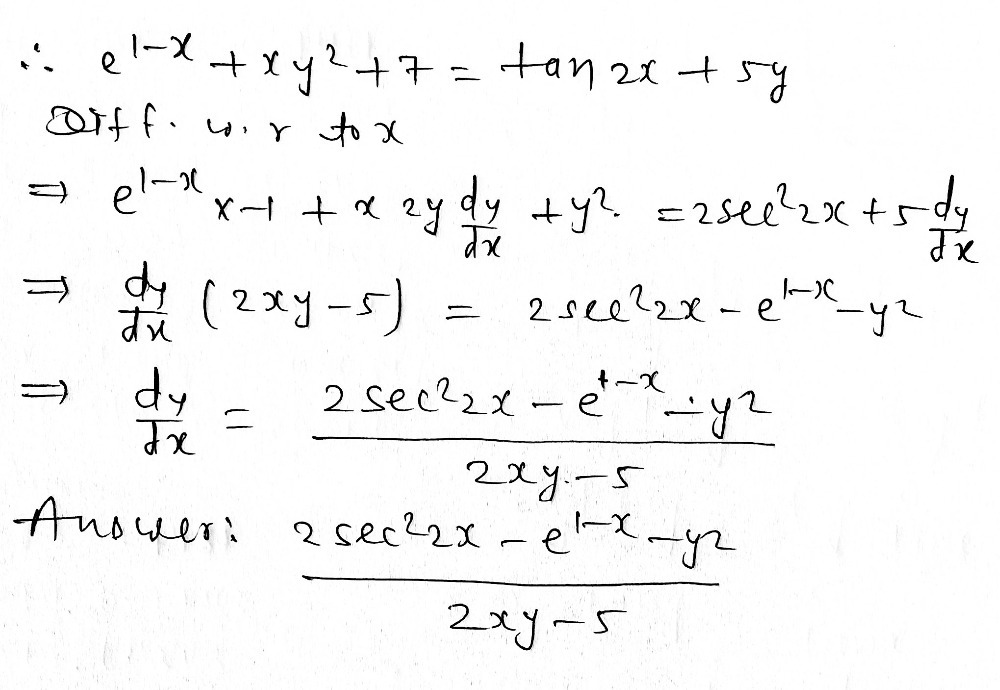 ∴ e^{1-x} + xy² + 7 = tan 2x + 5y
Diff. w. r to x
⇒ e^{1-x} x-1 + x 2y dy/dx + y². = 2sec²2x + 5 dy/dx
⇒ dy/dx (2xy - 5) = 2sec²2x - e^{1-x} - y²
⇒ dy/dx = (2sec²2x - e^{1-x} - y²)/(2xy - 5)
Answer: (2sec²2x - e^{1-x} - y²)/(2xy - 5)